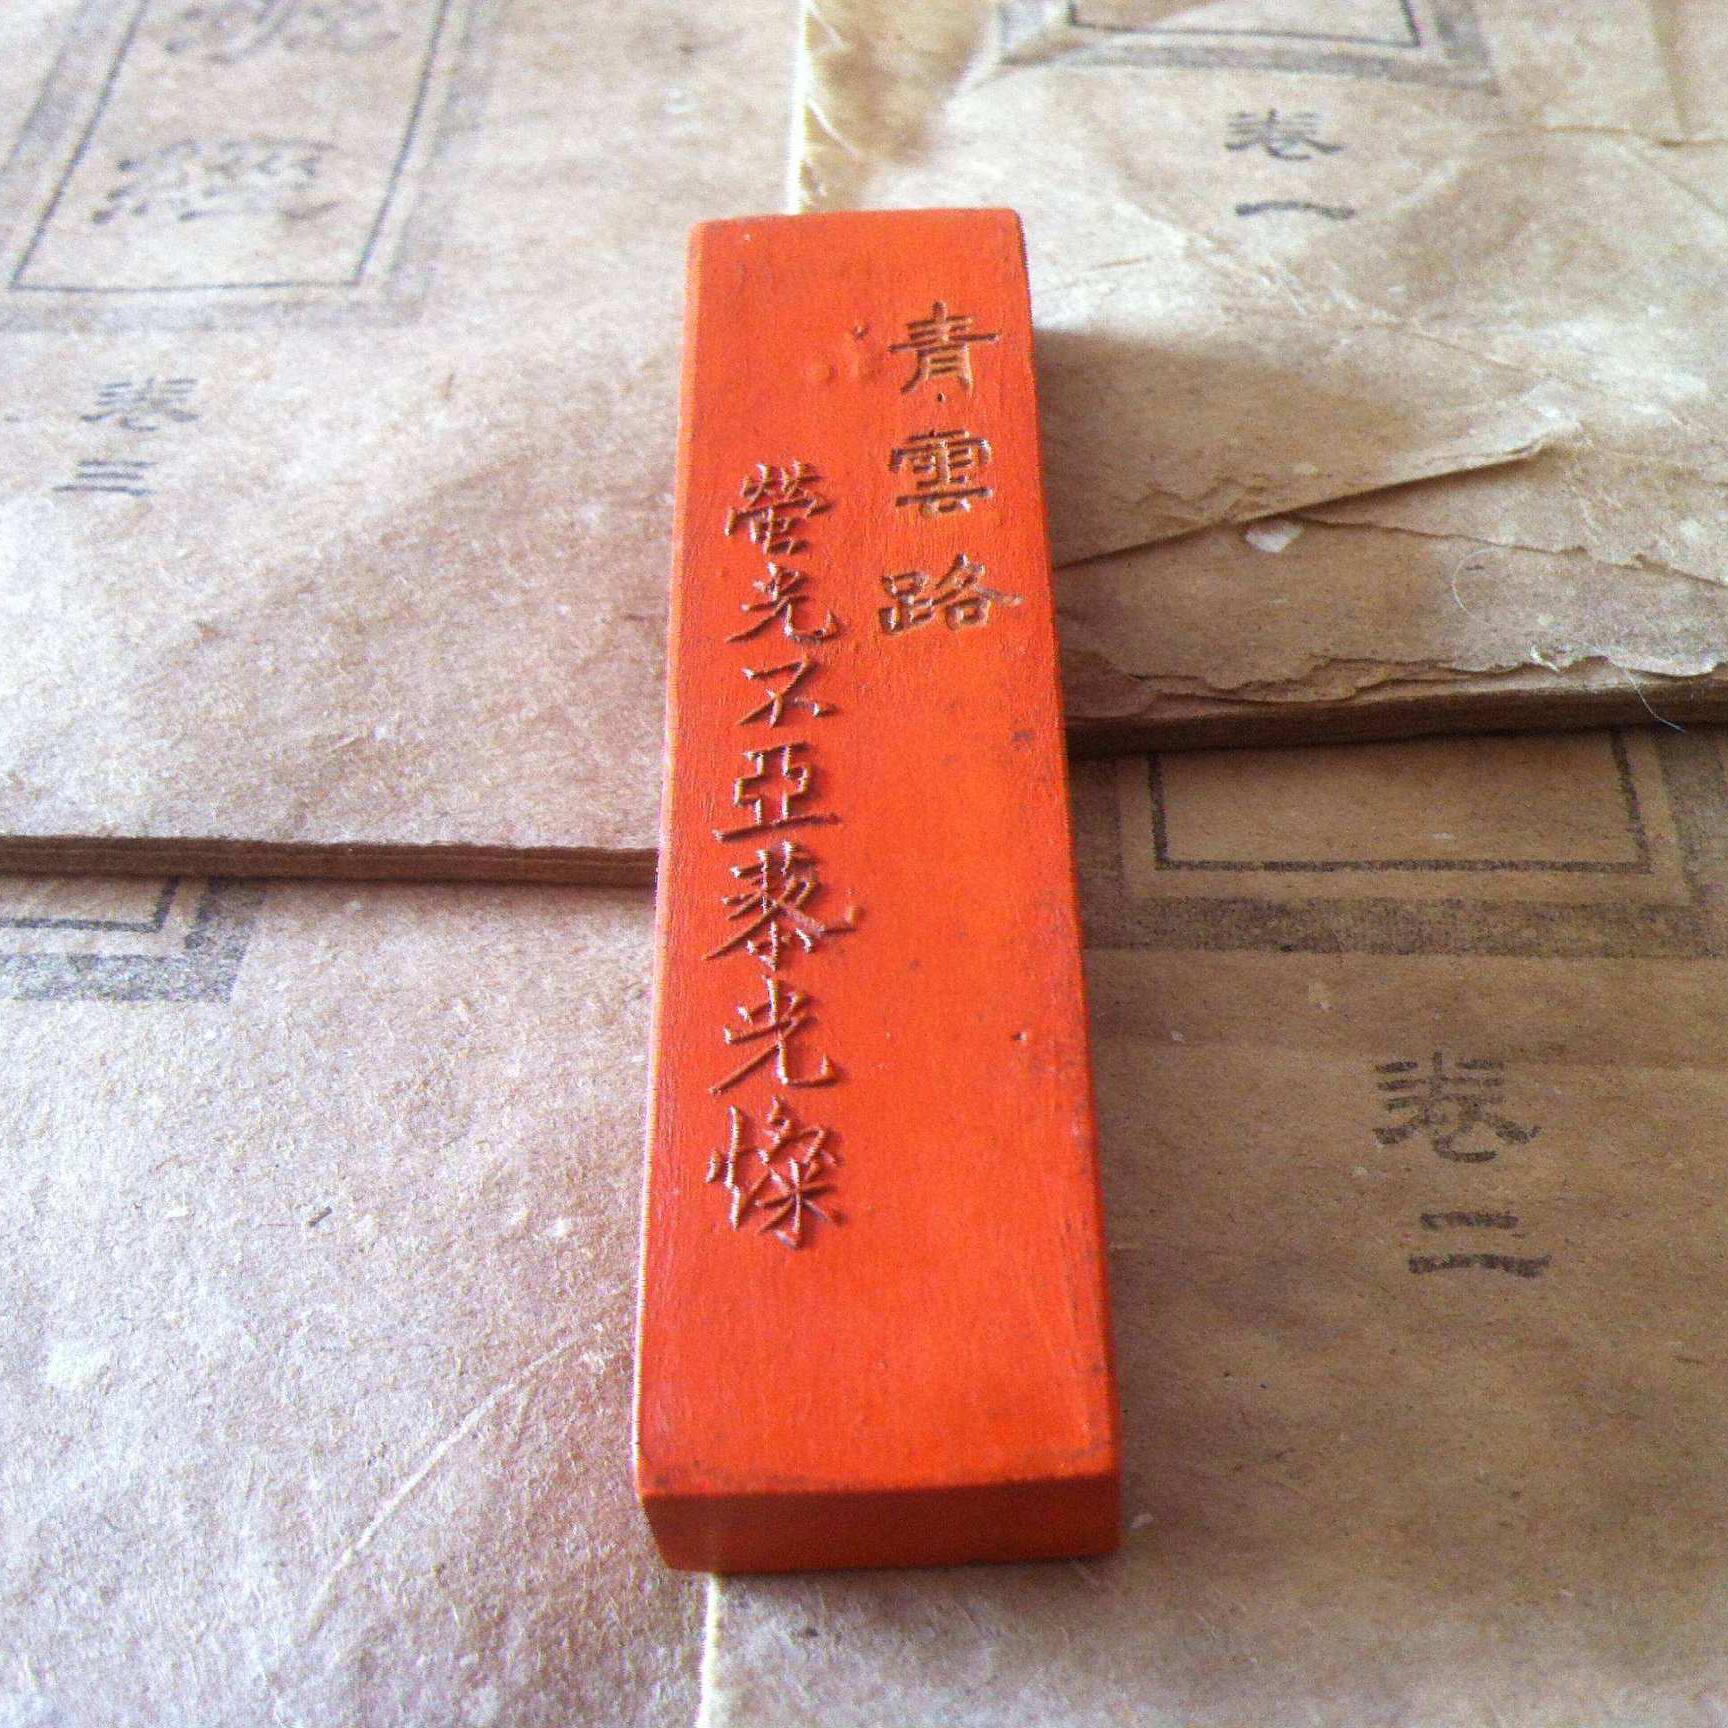 青雲路
螢光不亞藜光燦
卷一
卷二
經
卷三